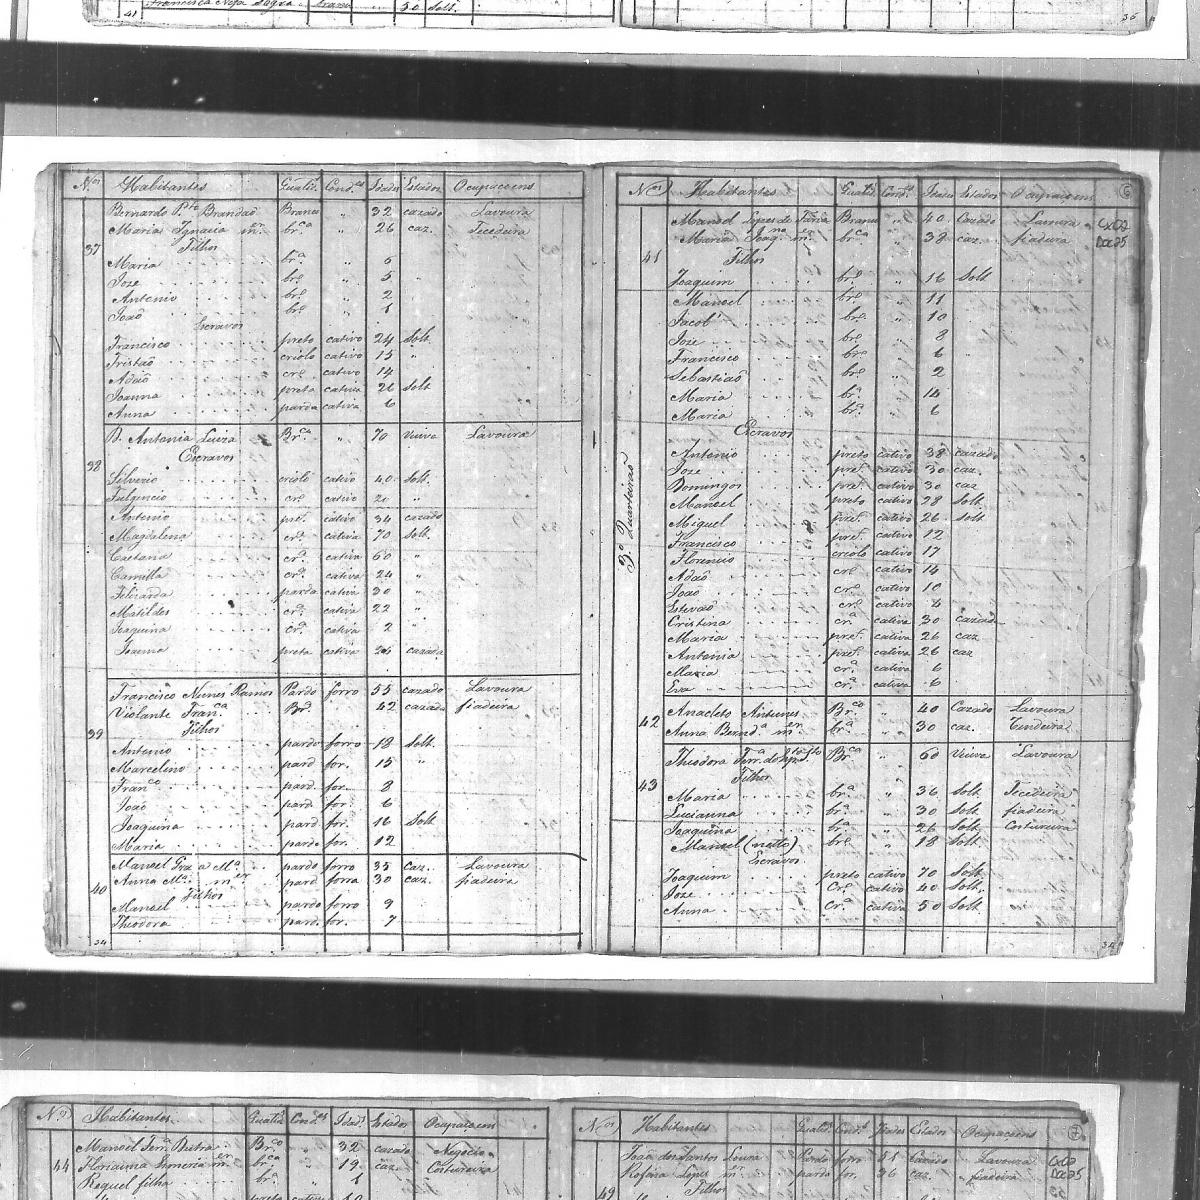 41 Francisca 50 Solt.
N.os Habitantes Qualid. Cond.es Idades Estados Ocupaçoens
Bernardo P.to Brandaõ Branco " 32 cazado Lavoura
Maria Ignacia m.er br.ca " 26 caz. Tecedeira
37 Filhos
Maria br.a " 6
Joze br.o " 5
Antonio br.o " 2
Joaõ br.o " 1
Escravos
Francisco preto cativo 24 Solt.
Tristaõ criolo cativo 15 "
Adaõ cr.o cativo 14
Joanna preta cativa 26 Solt
Anna parda cativa 6
D. Antonia Luiza Br.ca " 70 Viuva Lavoura
Escravos
38
Silverio criolo cativo 40 Solt.
Fulgencio cr.o cativo 20 "
Antonio pret. cativo 34 cazado
Magdalena cr.a cativa 70 Solt.
Caetana cr.a cativa 60 "
Camilla cr.a cativa 24 "
Felizarda parda cativa 30 "
Matildes cr.a cativa 22 "
Joaquina cr.a cativa 2 "
Joanna preta cativa 26 cazada
Francisco Nunes Ramos Pardo forro 55 cazado Lavoura
Violante Fran.ca Br.a 42 cazada fiadeira
39 Filhos
Antonio pardo forro 18 Solt.
Marcelino pard. for. 15 "
Fran.co pard. for. 8
Joaõ pard. for. 6
Joaquina pard. for. 16 Solt
Maria pard. for. 12
Manoel pardo forro 35 Caz. Lavoura
Anna M.a m.er pard forra 30 caz. fiadeira
40 Filhos
Manoel pardo forro 9
Theodora pard. for. 7
34
N.os Habitantes Qualid. Cond. Idades Estados Ocupaçoens 6
Manoel Lopes de Faria Branco " 40 Cazado Lavoura Cx07
Maria Joaq.na m.er br.ca " 38 caz. fiadeira Doc25
41 Filhos
Joaquim br.o " 16 Solt
Manoel br.o " 11
Jacob br.o " 10
Joze br.o " 8
Francisco br.o " 6
Sebastiaõ br.o " 2
Maria br.a " 14
Maria br.a " 6
Escravos
Antonio preto cativo 38 cazado
Joze pret. cativo 30 caz.
Domingos pret. cativo 30 caz
Manoel preto cativo 28 Solt
Miguel pret. cativo 26 Solt
Francisco pret. cativo 12
Florencio criolo cativo 17
Adaõ cr.o cativo 14
Joaõ cr.o cativo 10
Estevaõ cr.o cativo 4
Cristina cr.a cativa 30 Cazada
Maria pret. cativa 26 caz
Antonia pret. cativa 26 caz
Maria cr.a cativa 6
Eva cr.a cativa 6
3.o Quarteiraõ
Anacleto Antunes Br.co " 40 Cazado Lavoura
42 Anna Bernd.a m.er br.a " 30 caz. Tendeira
Theodora Br.ca " 60 Viuva Lavoura
Filhos
43 Maria br.a " 36 Solt Tecedeira
Lucianna br.a " 30 Solt fiadeira
Joaquina br.a " 26 Solt Costureira
Manoel (netto) br.o " 18 Solt
Escravos
Joaquim preto cativo 70 Solt
Joze Cr.o cativo 40 Solt.
Anna Cr.a cativa 50 Solt
N.os Habitantes Qualid. Cond.es Idad. Estados Ocupaçoens
Manoel Ferr.a Dutra Br.co " 32 cazado Negocio
44 br.ca " 19 caz. Costureira
Requel filha br. " 1
N.os Habitantes Qualid. Cond. Idades Estados Ocupaçoens 7
Joaõ dos Santos Pardo for. Cazado Lavoura Cx07
Lopes m.er parda for. 36 caz. fiadeira Doc25
49 Filhos